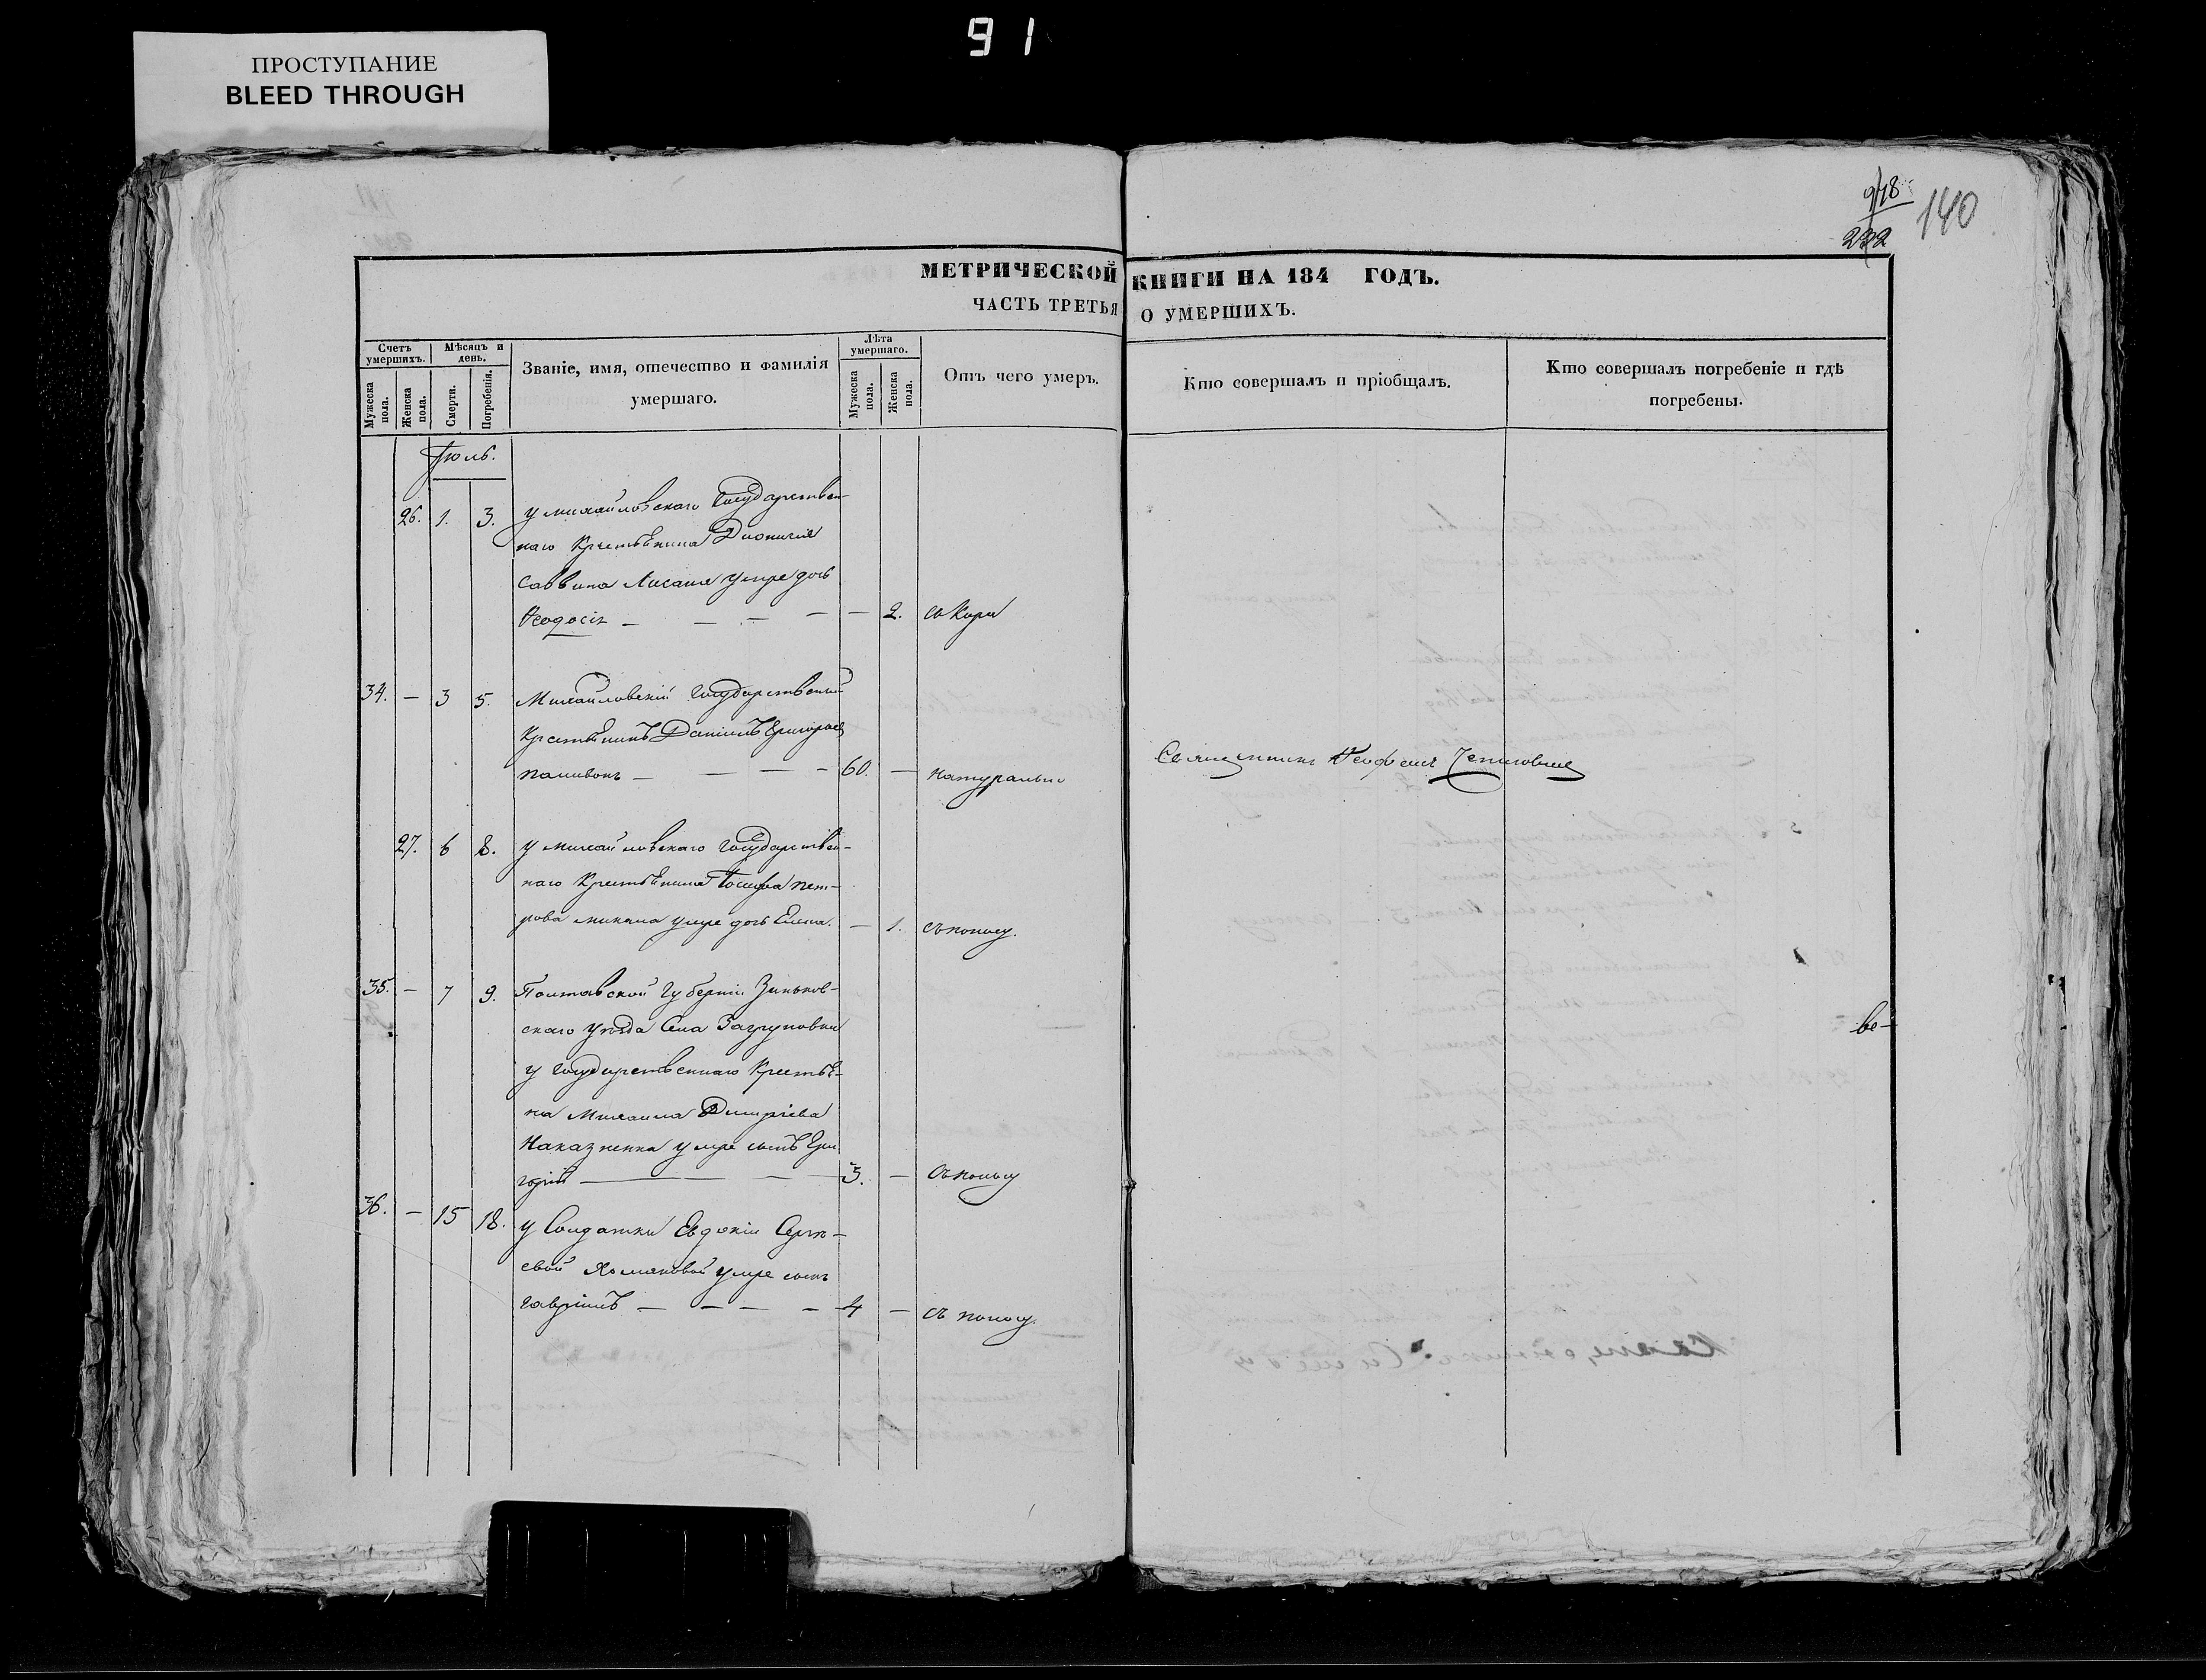 91
ПРОСТУПАНИЕ
BLEED THROUGH
978
140
МЕТРИЧЕСКОЙ КНИГИ НА 184 ГОДЪ.
ЧАСТЬ ТРЕТЬЯ О УМЕРШИХЪ.
Счетъ умершихъ.
Мужеска пола.
Женска пола.
Мѣсяцъ и день.
Смерти.
Погребенія.
Званіе, имя, отечество и фамилія умершаго.
Лѣта умершаго.
Мужеска пола.
Женска пола.
Отъ чего умеръ.
Кто совершалъ и пріобщалъ.
Кто совершалъ погребеніе и гдѣ погребены.
Іюль.
26. 1. 3. у михайловскаго Государствен-
наго Крестьянина Дионисія
Саввина умре дочь
Ѳеодосія — — — — — 2. съ Кори
34. — 3 5. Михайловскій Государственный
Крестьянинъ Даніилъ Григорьев
— — — — 60. — натурально
Священникъ Ѳеофилъ
27. 6 8. у михайловскаго Государствен-
наго Крестьянина Іосифа пет-
рова умре дочь Елена. — 1. съ поносу.
35. — 7 9. Полтавской Губерніи Зиньков-
скаго уезда Села Загруновки
ве-
у Государственнаго Крестья-
на Михаила Димитріева
Наказненка умре сынъ Гри
горій — — — 3. — Съ поносу
36. — 15 18. у Солдатки Евдокіи Сергѣ-
евой умре сынъ
Гавріилъ — — — — 4 — съ поносу.